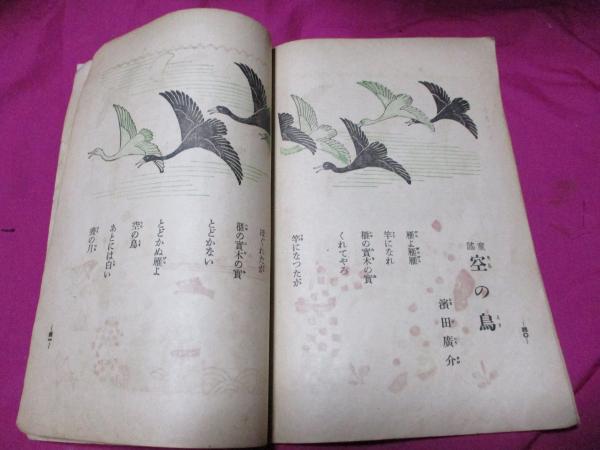 童謠
空の鳥
濱田廣介
雁よ雁雁
竿になれ
榧の實木の實
くれてやろ
竿になつたが
ほぐれたが
榧の實木の實
とどかない
とどかぬ雁よ
空の鳥
あとには白い
晝の月